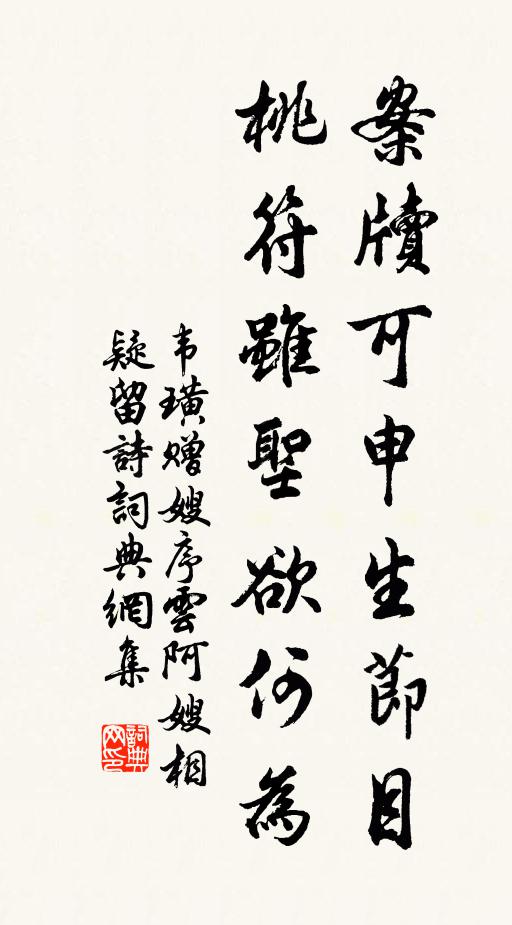 案牘可申生節目
桃符雖聖欲何為
韦璜赠嫂序雲阿嫂相
疑留詩詞典網集
詞典
网印